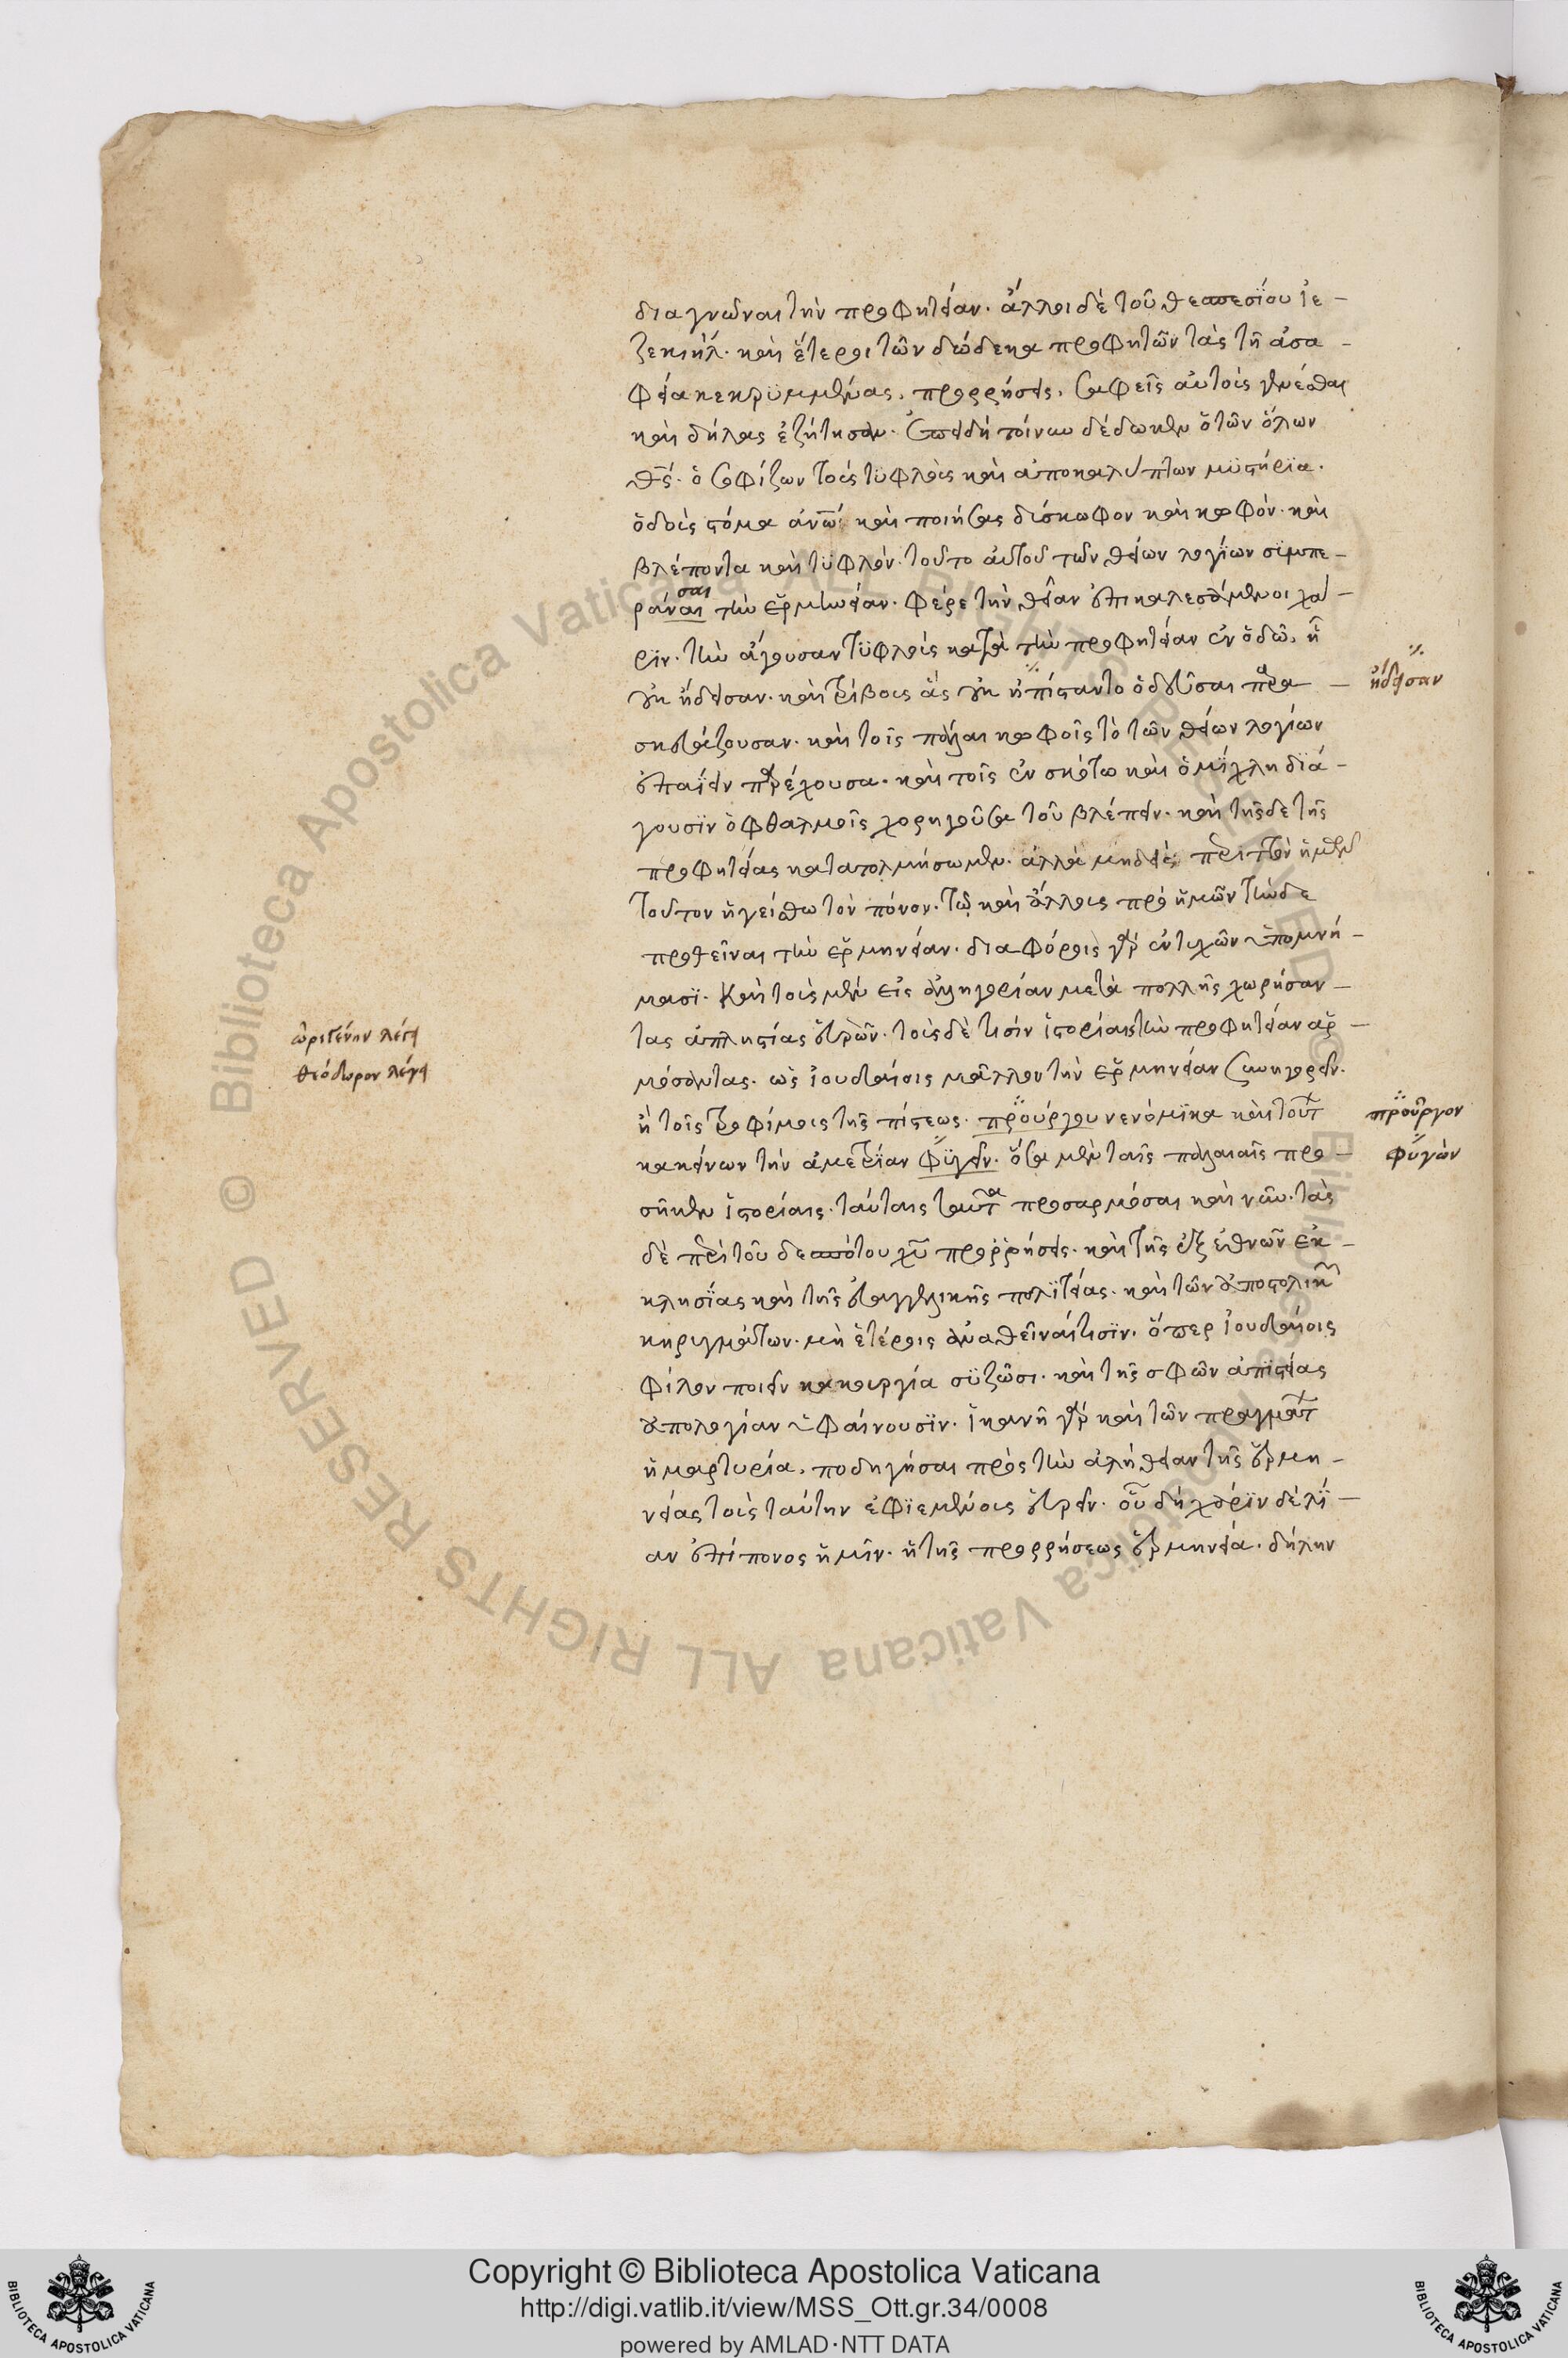 διαγνῶναι τὴν προφητείαν· ἄλλοι δὲ τοῦ θεσπεσΐου ἰε-
ζεκιήλ· καὶ ἕτεροι τῶν δώδεκα προφητῶν τὰς τῇ ἀσα-
φεία κεκρϋμμένας, προρρήσεις, σαφεῖς αὐτοῖς γενέσθαι
καὶ δήλας ἐζήτησαν· ἐπειδὴ τοίνυν δέδωκεν ὁ τῶν ὅλων
θς· ὁ σοφίζων τοὺς τϋφλοὺς καὶ ἀποκαλύπτων μϋστήρϊα·
ὁ δοὺς στόμα ἀνω· καὶ ποιήσας δύσκωφον καὶ κωφόν· καὶ
βλέποντα καὶ τϋφλόν· τοῦτο αὐτοῦ τῶν θείων λογίων συμπε-
σαι
ράναι τὴν ἑρμηνείαν· φέρε τὴν θείαν ἐπικαλεσάμενοι χά-
ρϊν· τὴν ἄγουσαν τϋφλοὺς κατὰ τὴν προφητείαν ἐν ὁδῶ, ἧ
οὐκ ᾔδεσαν· καὶ τρίβους ἃς οὐκ ἠπίσταντο ὁδεῦσαι παρα
σκευάζουσαν· καὶ τοῖς πάλαι κωφοῖς τὸ τῶν θείων λογίων
ἐπαΐειν παρέχουσα· καὶ τοῖς ἐν σκότω καὶ ὁμΐχλη δϊά-
γουσϊν ὀφθαλμοῖς χορηγοῦσα τοῦ βλέπειν· καὶ τῆσδε τῆς
προφητείας κατατολμήσωμεν· ἀλλὰ μηδεὶς περιττὸν ἡμῶν
τοῦτον ἡγείσθω τὸν πόνον· τῷ καὶ ἄλλους πρὸ ἡμῶν τήνδε
προθεῖναι τὴν ἑρμηνείαν· διαφόροις γὰρ ἐντυχὼν ὑπομνή-
μασϊ· καὶ τοὺς μὲν εἰς ἀλληγορίαν μετὰ πολλῆς χωρήσαν-
τας ἀπληστίας εὑρών· τοὺς δὲ τισὶν ἱστορίαις τὴν προφητείαν ἁρ-
μόσαντας· ὡς ἰουδαίοις μᾶλλον τὴν ἑρμηνείαν συνηγορεῖν·
ἢ τοῖς τροφίμοις τῆς πίστεως· προύργου νενόμϊκα καὶ τούτ
κακείνων τὴν ἀμετρΐαν φϋγεῖν· ὅσα μὲν ταῖς παλαιαῖς προ-
σῆκεν ἱστορίαις· ταύταις ταῦτα προσαρμόσαι καὶ νῦν· τὰς
δὲ περὶ τοῦ δεσπότου χυ προρρήσεις· καὶ τῆς ἐξ ἐθνῶν ἐκ-
κλησΐας καὶ τῆς εὐαγγελικῆς πολϊτείας· καὶ τῶν ἀποστολικῶν
κηρυγμάτων· μὴ ἑτέροις ἀναθεῖναί τισϊν· ὅπερ ἰουδαίοις
φίλον ποιεῖν κακουργία σϋζῶσι· καὶ τῆς σφῶν ἀπϊστίας
ἀπολογίαν ὑφαίνουσϊν· ἱκανὴ γὰρ καὶ τῶν πραγμάτ
ἡ μαρτυρία, ποδηγήσαι πρὸς τὴν ἀλήθειαν τῆς ἑρμη-
νείας τοὺς ταύτην ἐφϊεμένους εὑρεῖν· οὗ δὴ χάρϊν δὲ λΐ-
αν ἐπίπονος ἡμῖν· ἡ τῆς προρρήσεως ἑρμηνεία· δήλην
ᾔδεισαν
ὠριγένην λέγει
θεόδωρον λέγει
προῦργον
φυγὼν
Copyright © Biblioteca Apostolica Vaticana
http://digi.vatlib.it/view/MSS_Ott.gr.34/0008
powered by AMLAD·NTT DATA
BIBLIOTECA APOSTOLICA VATICANA
BIBLIOTECA APOSTOLICA VATICANA